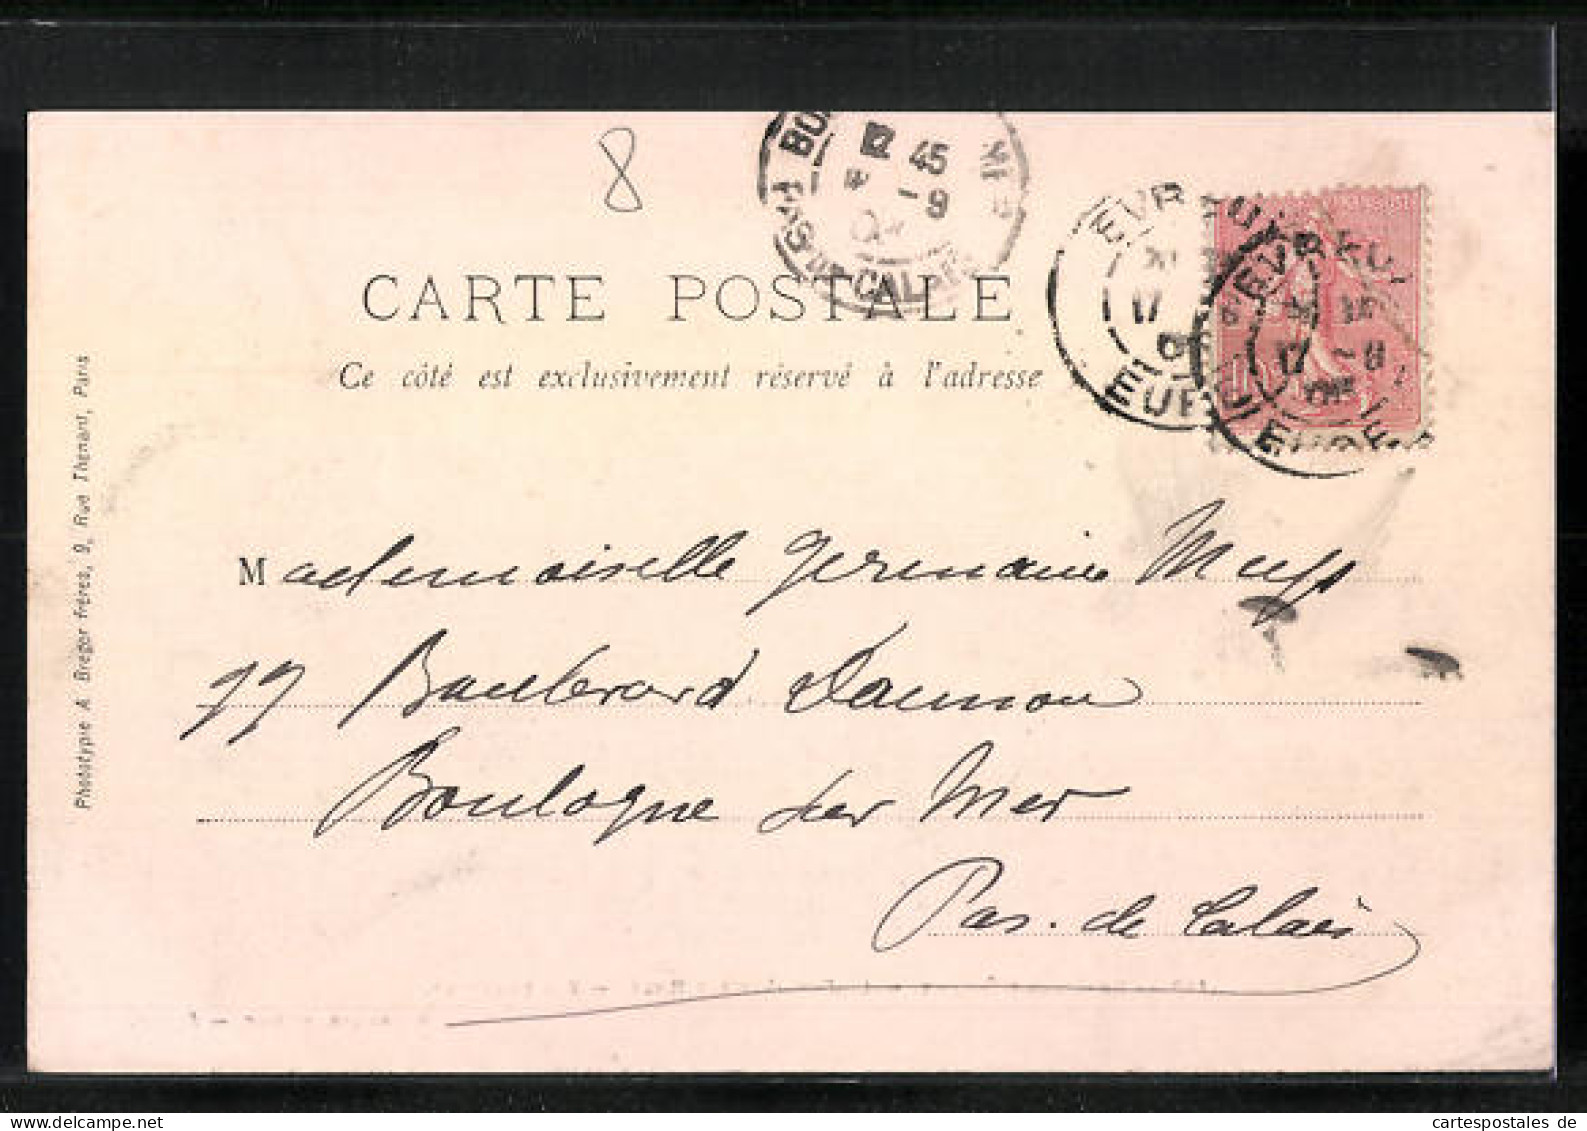 8
12 45
-9
PAS-DE-CALAIS
EVREUX
17
EURE
EVREUX
17 -8
EURE
CARTE POSTALE
Ce côté est exclusivement réservé à l'adresse
Phototypie A Breger frères, 9, Rue Thenard, Paris
Mademoiselle Germaine
77 Boulevard Daunou
Boulogne sur Mer
Pas-de Calais
cartespostales de